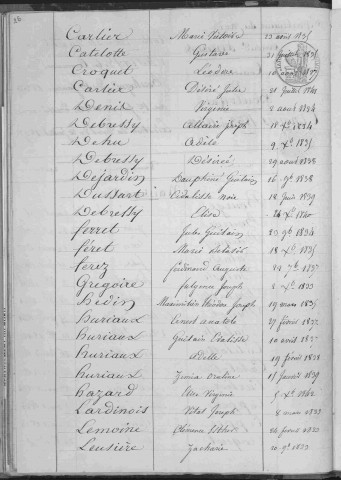 Cartier Marie Victoire 23 avril 1835
Catilotte Gustave 21 juillet 1835
Croquet Léodine 10 1837
Cartier Désiré Jules 21 Juillet 1842
Denis Virginie 2 aout 1834
Debressy joseph 18 Xbre 1834
Dehu Adèle 9 Xbre 1835
Debressy Désirée 29 1838
Dejardin Dauphine Guilain 16 9bre 1838
Dussart noie 18 Juin 1839
Debressy Elise 14 Xbre 1840
ferret Jules Guilain 23 9bre 1834
féret Marie 18 Xbre 1835
ferez ferdinand Auguste 22 7bre 1837
Grégoire Joseph 2 7bre 1833
hédin Maximilien Théodore Joseph 19 mars 1835
huriaux Ernest anatole 27 février 1837
huriaux Guilain 10 avril 1837
huriaux Adelle 19 février 1838
huriaux 15 Janvier 1839
hazard Virginie 5 Xbre 1842
Lardinois Vital Joseph 8 mai 1833
Lemoine 24 février 1833
Leusière Zacharie 20 9bre 1833